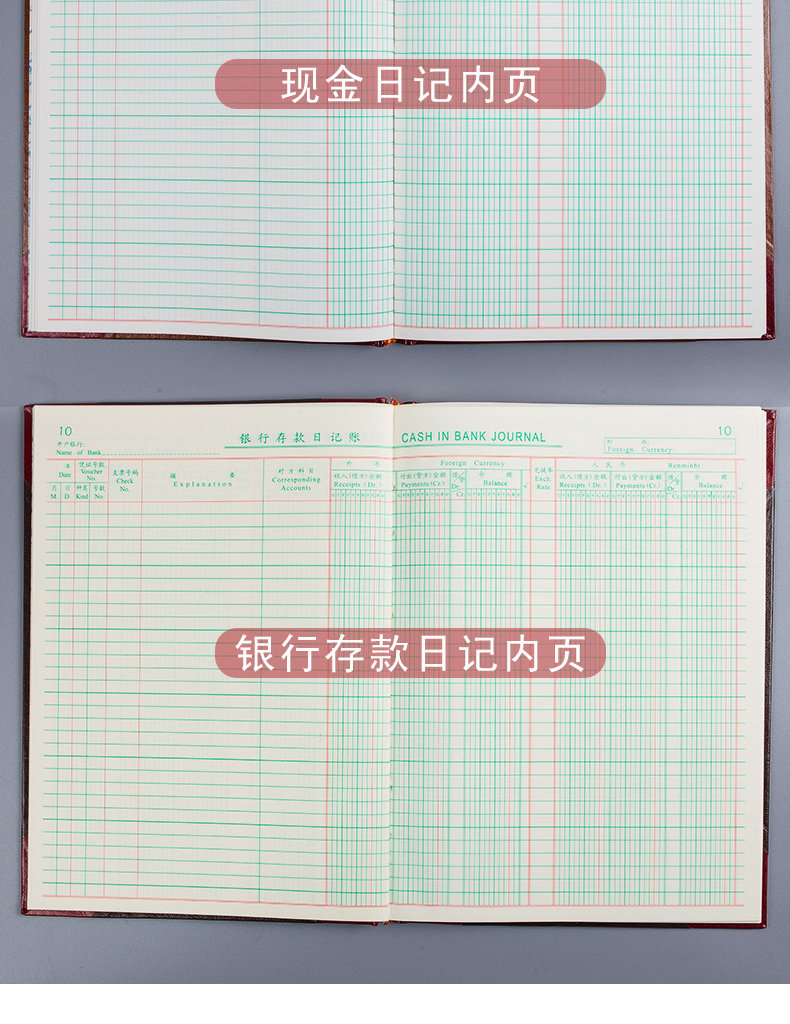 现金日记内页
10
银行存款日记账 CASH IN BANK JOURNAL
10
开户银行:
Name of Bank
外 币:
Foreign Currency:
年
Date
凭证号数
Voucher
No.
支票号码
Check
No.
摘 要
Explanation
对方科目
Corresponding
Accounts
外 币
Foreign Currency
兑换率
Exch.
Rate
人 民 币
Renminbi
月
M.
日
D.
种类
Kind
号数
No.
收入(借方)金额
Receipts (Dr.)
付出(贷方)金额
Payments(Cr.)
借
贷
Dr.
Cr.
余 额
Balance
√
收入(借方)金额
Receipts (Dr.)
付出(贷方)金额
Payments(Cr.)
借
贷
Dr.
Cr.
余 额
Balance
银行存款日记内页